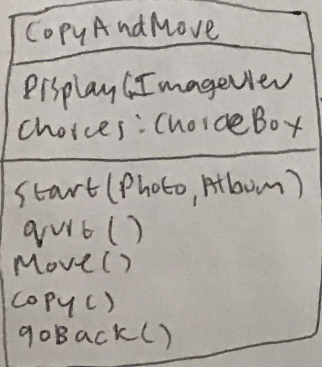 CopyAndMove
Display:ImageView
Choices:ChoiceBox
Start(Photo,Album)
quit()
Move()
Copy()
goBack()